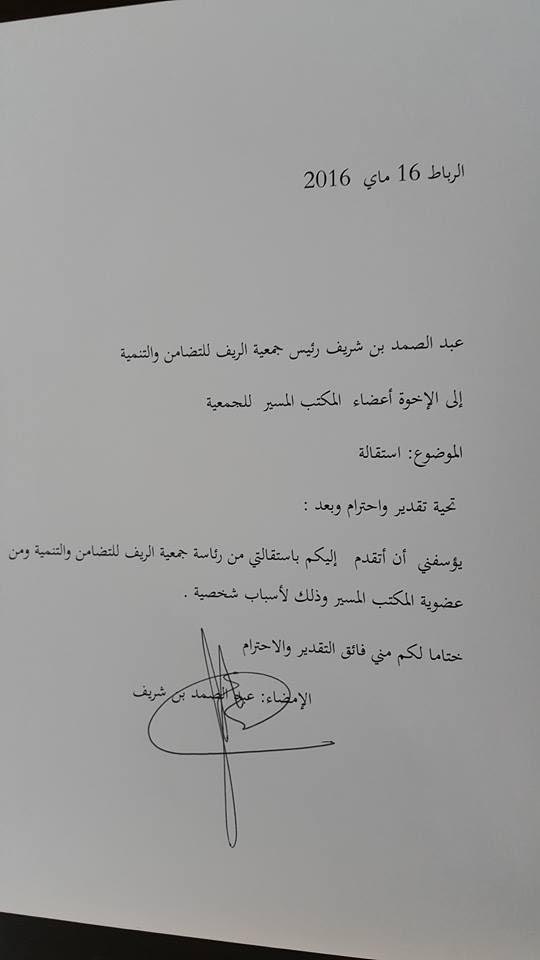 الرباط 16 ماي 2016
عبد الصمد بن شريف رئيس جمعية الريف للتضامن والتنمية
إلى الإخوة أعضاء المكتب المسير للجمعية
الموضوع: استقالة
تحية تقدير واحترام وبعد :
يؤسفني أن أتقدم إليكم باستقالتي من رئاسة جمعية الريف للتضامن والتنمية ومن
عضوية المكتب المسير وذلك لأسباب شخصية .
ختاما لكم مني فائق التقدير والاحترام
الإمضاء: عبد الصمد بن شريف